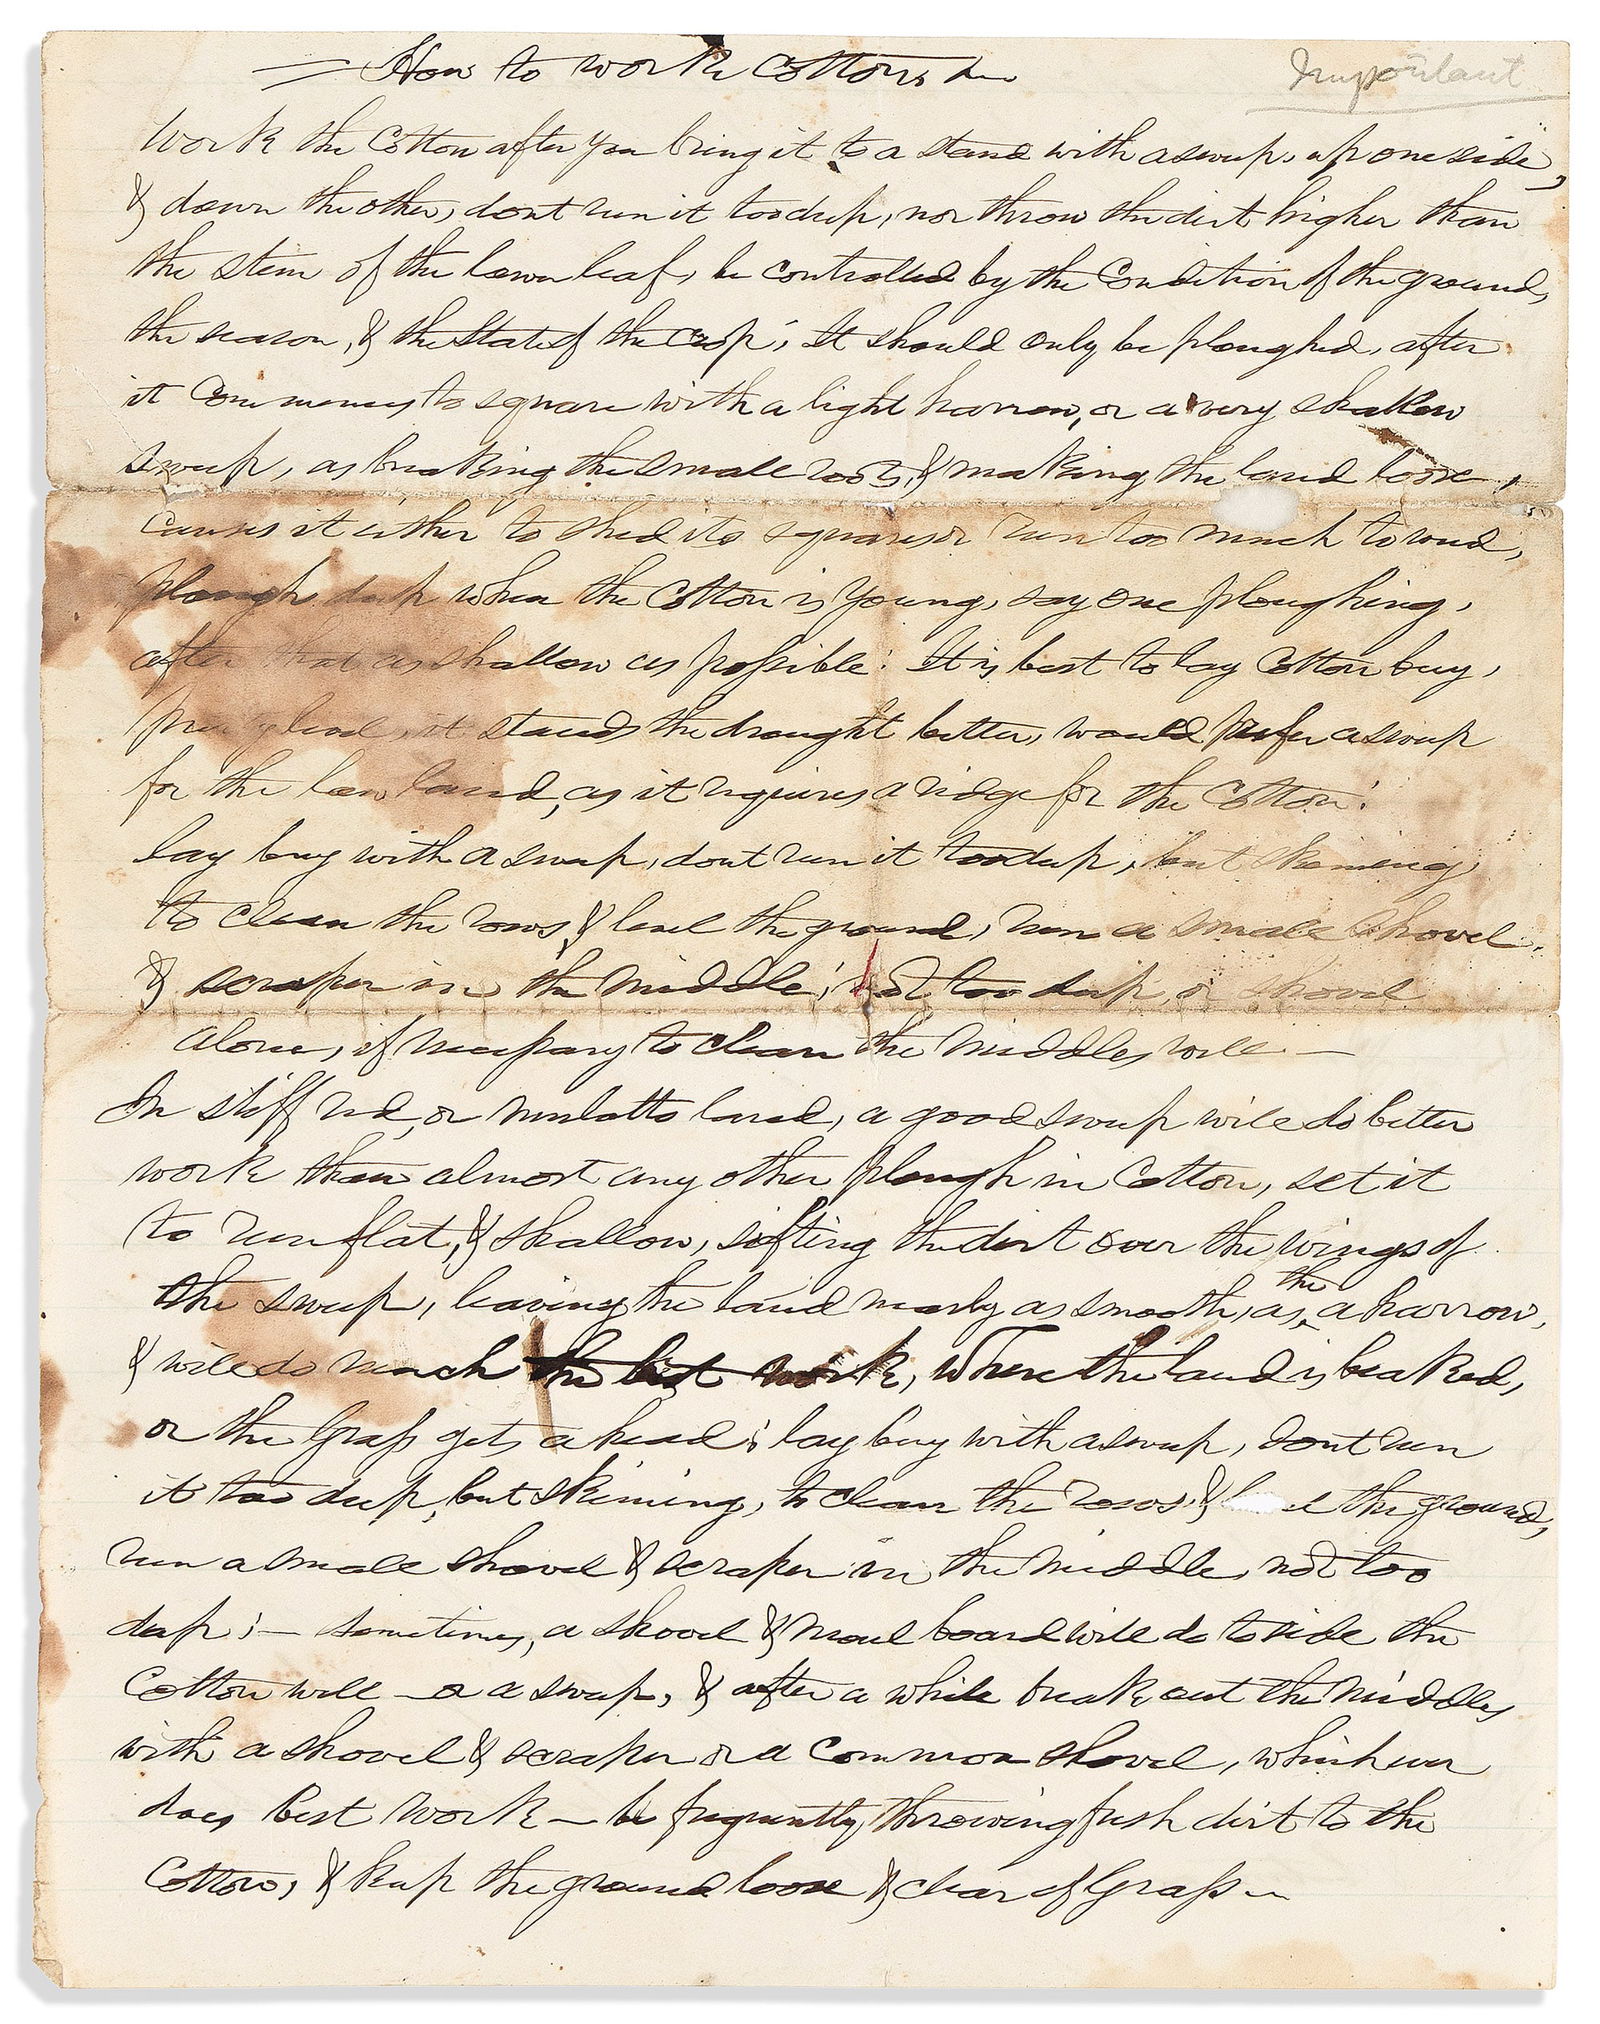 How to work Cotton &c
Important
Work the Cotton after you bring it to a stand with a sweep, up one side,
& down the other, dont run it too deep, nor throw the dirt higher than
the stem of the lower leaf, be controlled by the Condition of the ground,
the season, & the State of the crop; It should only be ploughed, after
it Commences to square with a light harrow, or a very shallow
sweep, as breaking the small roots, & making the land loose,
causes it either to shed its squares or run too much to weed,
plough deep when the Cotton is young, say one ploughing,
after that as shallow as possible: It is best to lay Cotton buy,
pretty level, it stands the drought better, would prefer a sweep
for the low land, as it requires a ridge for the Cotton:
lay buy with a sweep, dont run it too deep, but skiming
to clean the rows & level the ground, run a small shovel
& scraper in the middle; not too deep, or shovel
alone, if necessary to clean the middles well —
In stiff red, or mulatto land, a good sweep will do better
work than almost any other plough in Cotton, set it
to run flat, & shallow, sifting the dirt over the wings of
the sweep, leaving the land nearly as smooth, as the a harrow,
& will do much the best work, where the land is beaked,
or the Grass gets a head; lay buy with a sweep, dont run
it too deep, but skiming, to clean the rows, & the ground,
run a small shovel & scraper in the middle, not too
deep; — sometimes, a shovel & moul board will do to side the
Cotton well — or a sweep, & after a while break out the middles
with a shovel & scraper or a common shovel, which ever
does best work — be frequently throwing fresh dirt to the
Cotton, & keep the ground loose & clear of Grass —